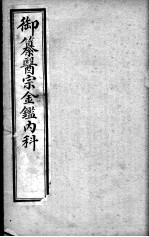 御纂醫宗金鑑內科